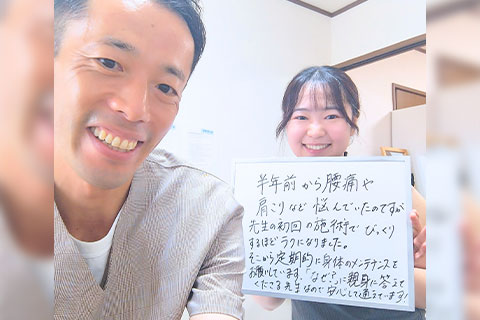 半年前から腰痛や
肩こりなど悩んでいたのですが
先生の初回の施術で びっくり
するほどラクになりました。
そこから定期的に身体のメンテナンスを
お願いしています。"なぜ?"に親身に答えて
くださる先生なので安心して通えてます!